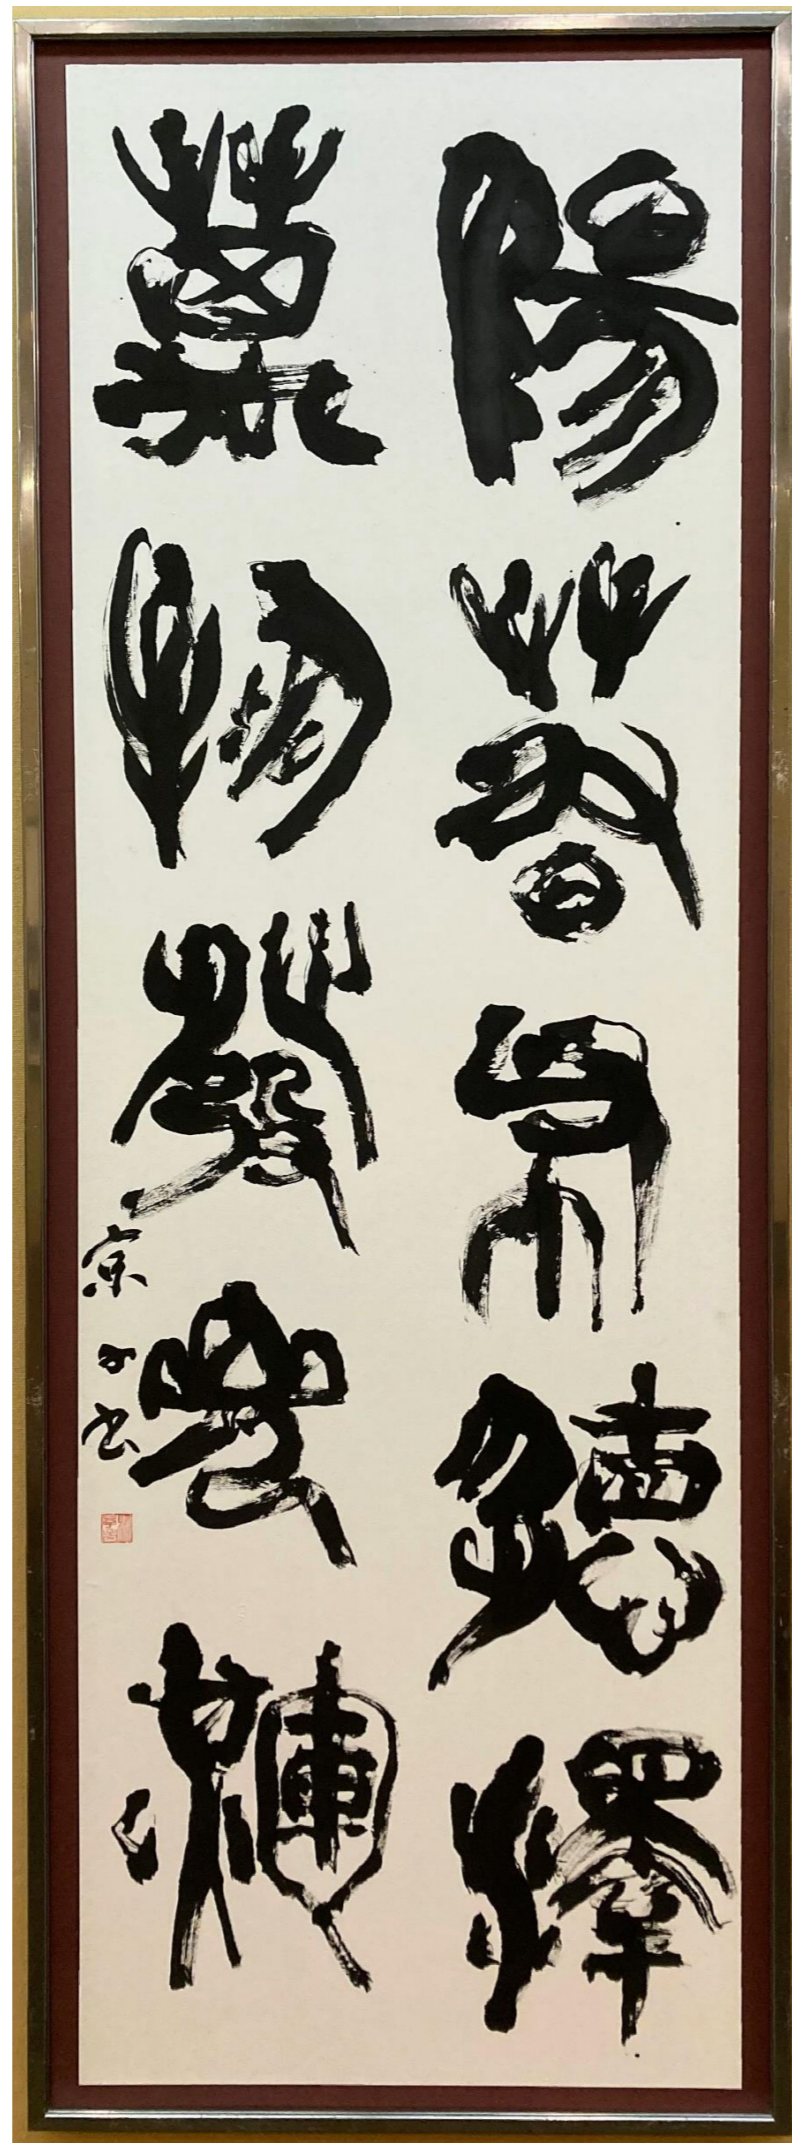 陽春布德澤
萬物發光輝
子書